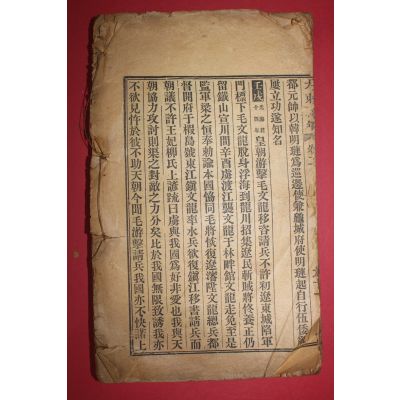 都元帥以韓明璉爲巡邊使兼
府使明璉起自行伍倭
屢立功遂知名
壬戌
皇朝游擊毛文龍移咨請兵不許初遼東城陷軍
門標下毛文龍脫身浮海到龍川招集遼民斬賊將佟養正仍
留鐵山宣川間辛酉虜渡江襲文龍于林畔館文龍走免至是
監軍梁之恒奉勅諭本國協同毛將恢復遼瀋陞文龍總兵都
督開府于椵島號東江鎭文龍率水兵欲復鎭江移書請兵而
朝議不許王妃柳氏上諺疏曰虜與我國爲好非愛也我與天
朝協力攻討則渠之對敵之力分矣比於我國無限致誘我亦
不欲見忤於彼不助天朝今聞毛游擊請兵我國亦不快諾上